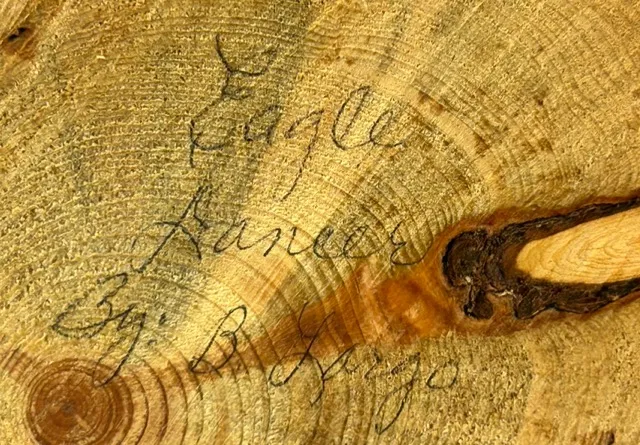 Eagle
Dancer
By: B Largo